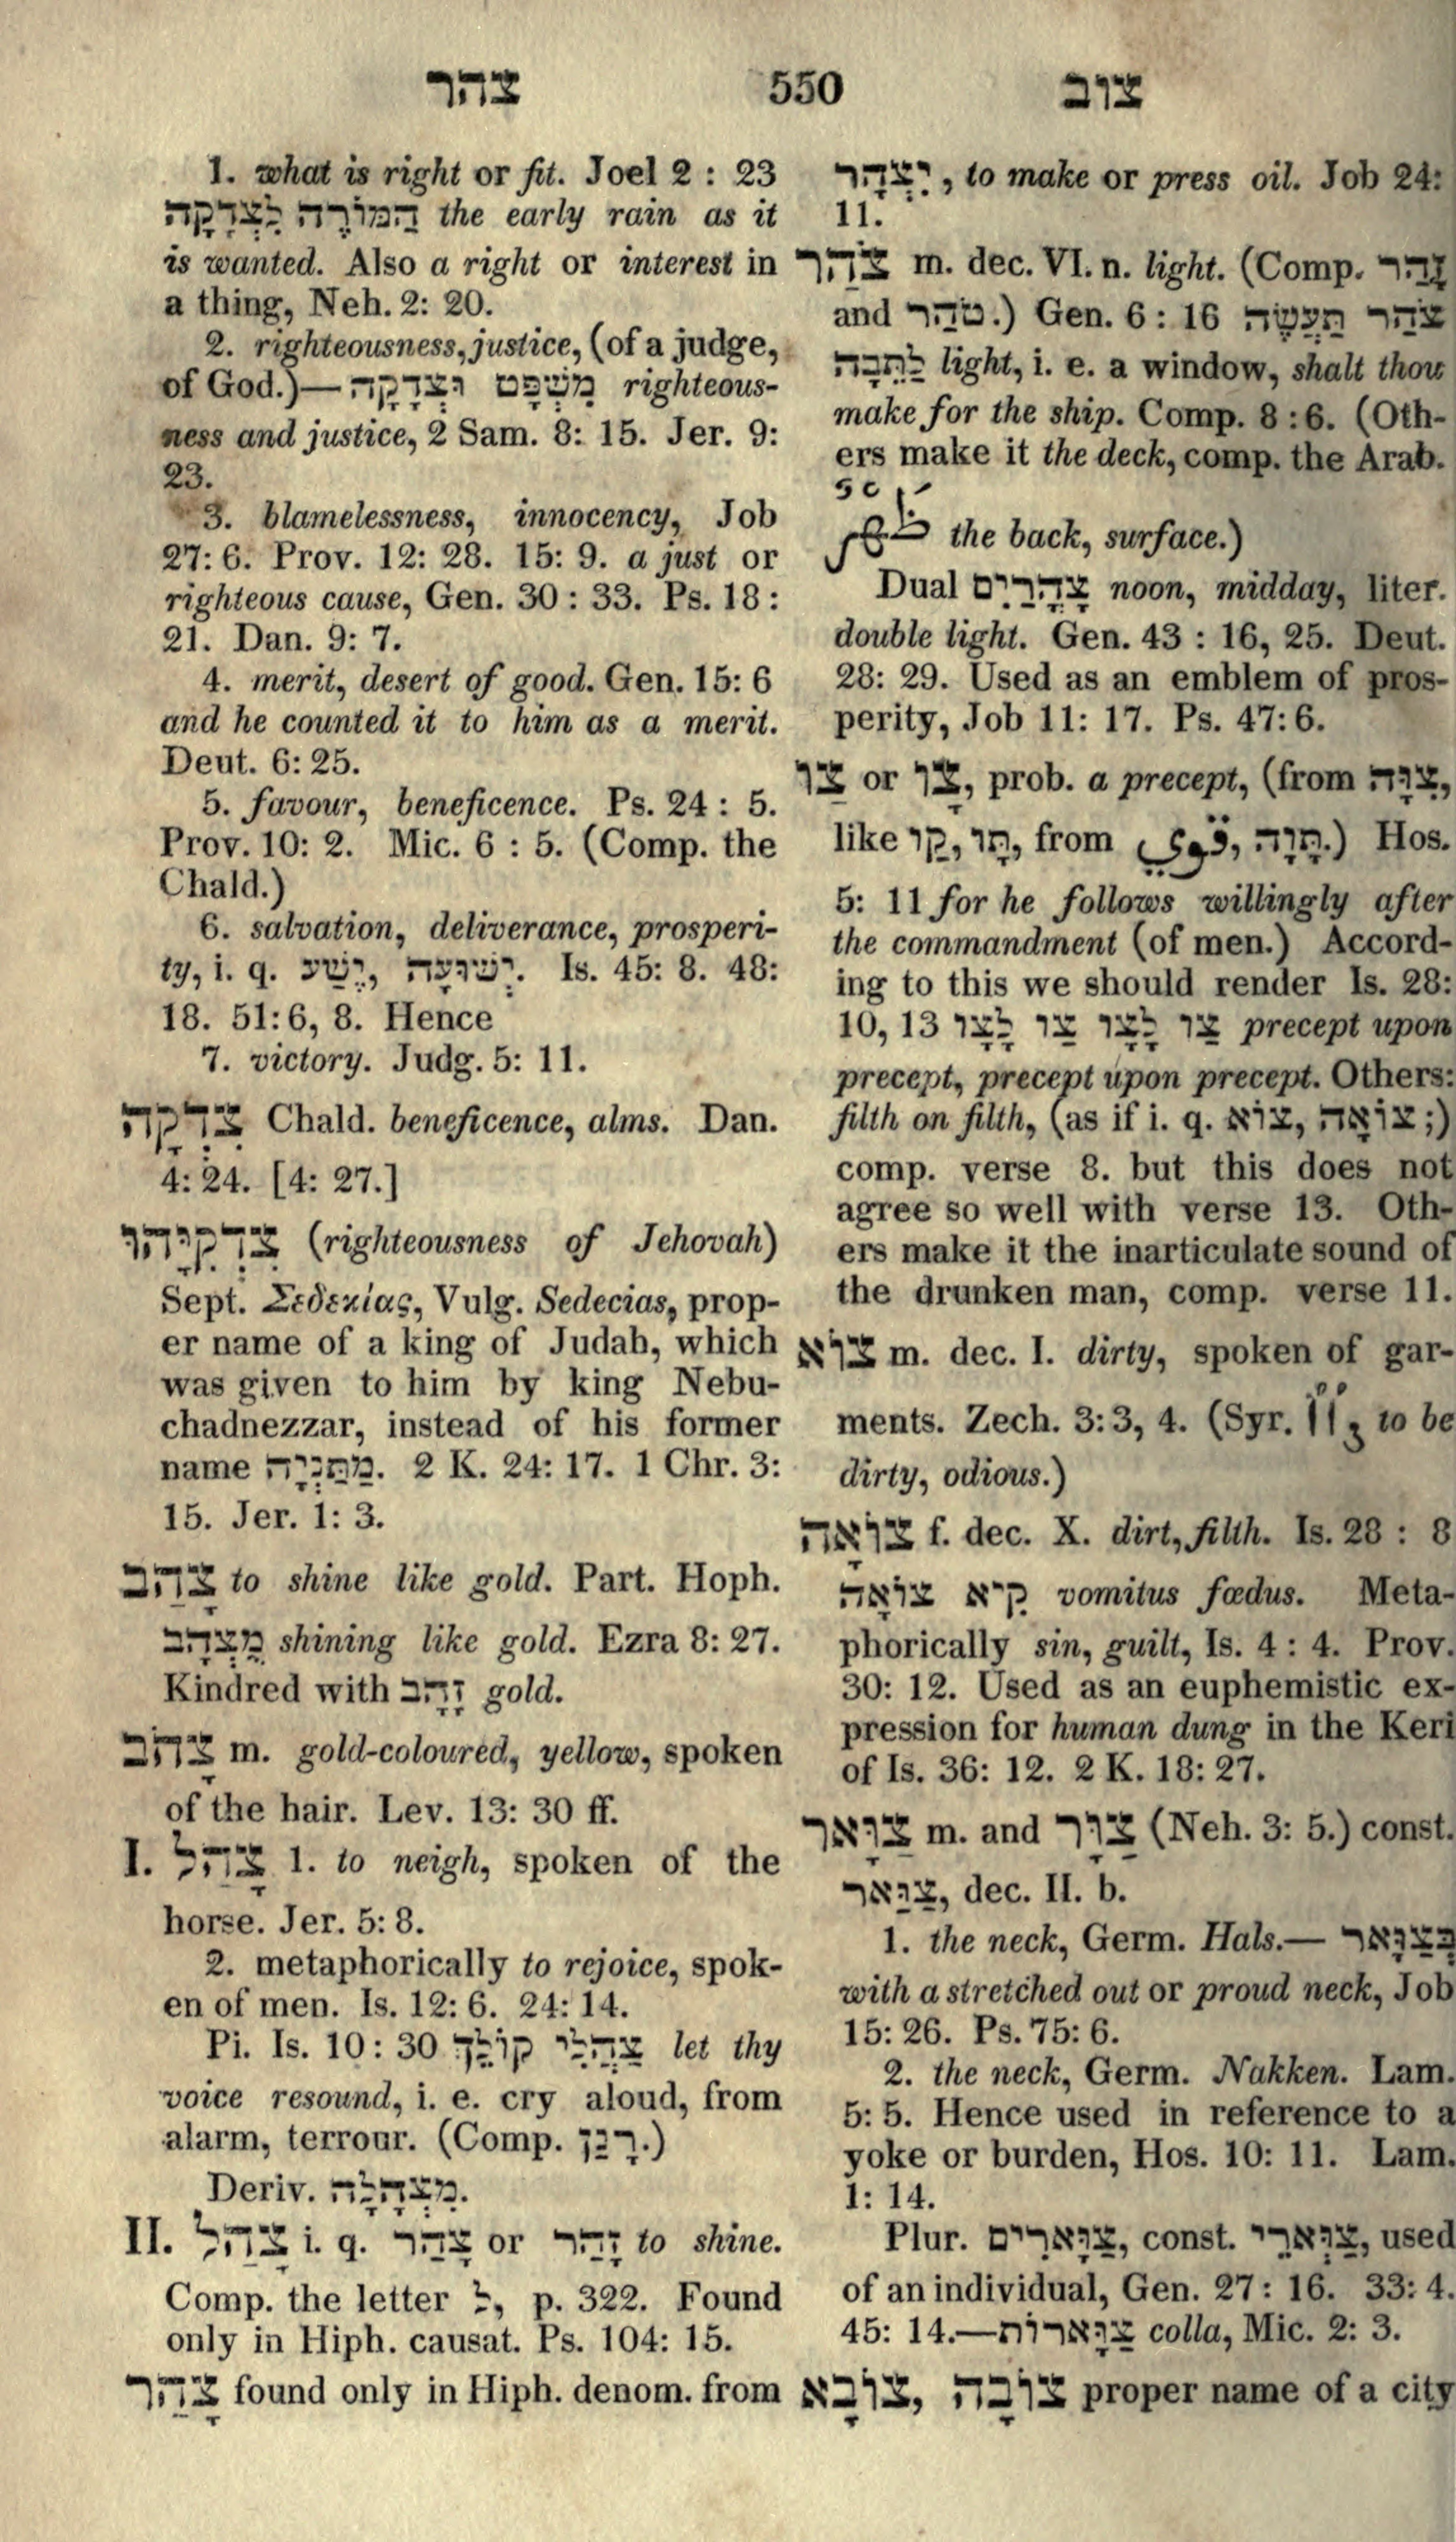 צהר 550 צוב
1. what is right or fit. Joel 2 : 23
הַמּוֹרֶה לִצְדָקָה the early rain as it
is wanted. Also a right or interest in
a thing, Neh. 2: 20.
2. righteousness, justice, (of a judge,
of God.)—מִשְׁפָּט וּצְדָקָה righteous-
ness and justice, 2 Sam. 8: 15. Jer. 9:
23.
3. blamelessness, innocency, Job
27: 6. Prov. 12: 28. 15: 9. a just or
righteous cause, Gen. 30 : 33. Ps. 18 :
21. Dan. 9: 7.
4. merit, desert of good. Gen. 15: 6
and he counted it to him as a merit.
Deut. 6: 25.
5. favour, beneficence. Ps. 24 : 5.
Prov. 10: 2. Mic. 6 : 5. (Comp. the
Chald.)
6. salvation, deliverance, prosperi-
ty, i. q. יֶשַׁע, יְשׁוּעָה. Is. 45: 8. 48:
18. 51: 6, 8. Hence
7. victory. Judg. 5: 11.
צִדְקָה Chald. beneficence, alms. Dan.
4: 24. [4: 27.]
צִדְקִיָּהוּ (righteousness of Jehovah)
Sept. Σεδεκίας, Vulg. Sedecias, prop-
er name of a king of Judah, which
was given to him by king Nebu-
chadnezzar, instead of his former
name מַתַּנְיָה. 2 K. 24: 17. 1 Chr. 3:
15. Jer. 1: 3.
צָהַב to shine like gold. Part. Hoph.
מֻצְהָב shining like gold. Ezra 8: 27.
Kindred with זָהָב gold.
צָהֹב m. gold-coloured, yellow, spoken
of the hair. Lev. 13: 30 ff.
I. צָהַל 1. to neigh, spoken of the
horse. Jer. 5: 8.
2. metaphorically to rejoice, spok-
en of men. Is. 12: 6. 24: 14.
Pi. Is. 10 : 30 צַהֲלִי קוֹלֵךְ let thy
voice resound, i. e. cry aloud, from
alarm, terrour. (Comp. רָנַן.)
Deriv. מִצְהָלָה.
II. צָהַל i. q. צָהַר or זָהַר to shine.
Comp. the letter ל, p. 322. Found
only in Hiph. causat. Ps. 104: 15.
צָהַר found only in Hiph. denom. from
יִצְהָר, to make or press oil. Job 24:
11.
צֹהַר m. dec. VI. n. light. (Comp. זָהַר
and טֹהַר.) Gen. 6 : 16 צֹהַר תַּעֲשֶׂה
לַתֵּבָה light, i. e. a window, shalt thou
make for the ship. Comp. 8 : 6. (Oth-
ers make it the deck, comp. the Arab.
ظَهْرٌ the back, surface.)
Dual צָהֳרַיִם noon, midday, liter.
double light. Gen. 43 : 16, 25. Deut.
28: 29. Used as an emblem of pros-
perity, Job 11: 17. Ps. 47: 6.
צַו or צָו, prob. a precept, (from צִוָּה,
like קַו, תָּו, from תָּוָה, قوي.) Hos.
5: 11 for he follows willingly after
the commandment (of men.) Accord-
ing to this we should render Is. 28:
10, 13 צַו לָצָו צַו לָצָו precept upon
precept, precept upon precept. Others:
filth on filth, (as if i. q. צוֹא, צוֹאָה;)
comp. verse 8. but this does not
agree so well with verse 13. Oth-
ers make it the inarticulate sound of
the drunken man, comp. verse 11.
צוֹא m. dec. I. dirty, spoken of gar-
ments. Zech. 3: 3, 4. (Syr. to be
dirty, odious.)
צוֹאָה f. dec. X. dirt, filth. Is. 28 : 8
קִיא צוֹאָה vomitus fœdus. Meta-
phorically sin, guilt, Is. 4 : 4. Prov.
30: 12. Used as an euphemistic ex-
pression for human dung in the Keri
of Is. 36: 12. 2 K. 18: 27.
צַוָּאר m. and צַוָּר (Neh. 3: 5.) const.
צַוַּאר, dec. II. b.
1. the neck, Germ. Hals.— בְּצַוָּאר
with a stretched out or proud neck, Job
15: 26. Ps. 75: 6.
2. the neck, Germ. Nakken. Lam.
5: 5. Hence used in reference to a
yoke or burden, Hos. 10: 11. Lam.
1: 14.
Plur. צַוָּארִים, const. צַוְּארֵי, used
of an individual, Gen. 27 : 16. 33: 4.
45: 14.—צַוָּארוֹת colla, Mic. 2: 3.
צוֹבָא, צוֹבָה proper name of a city